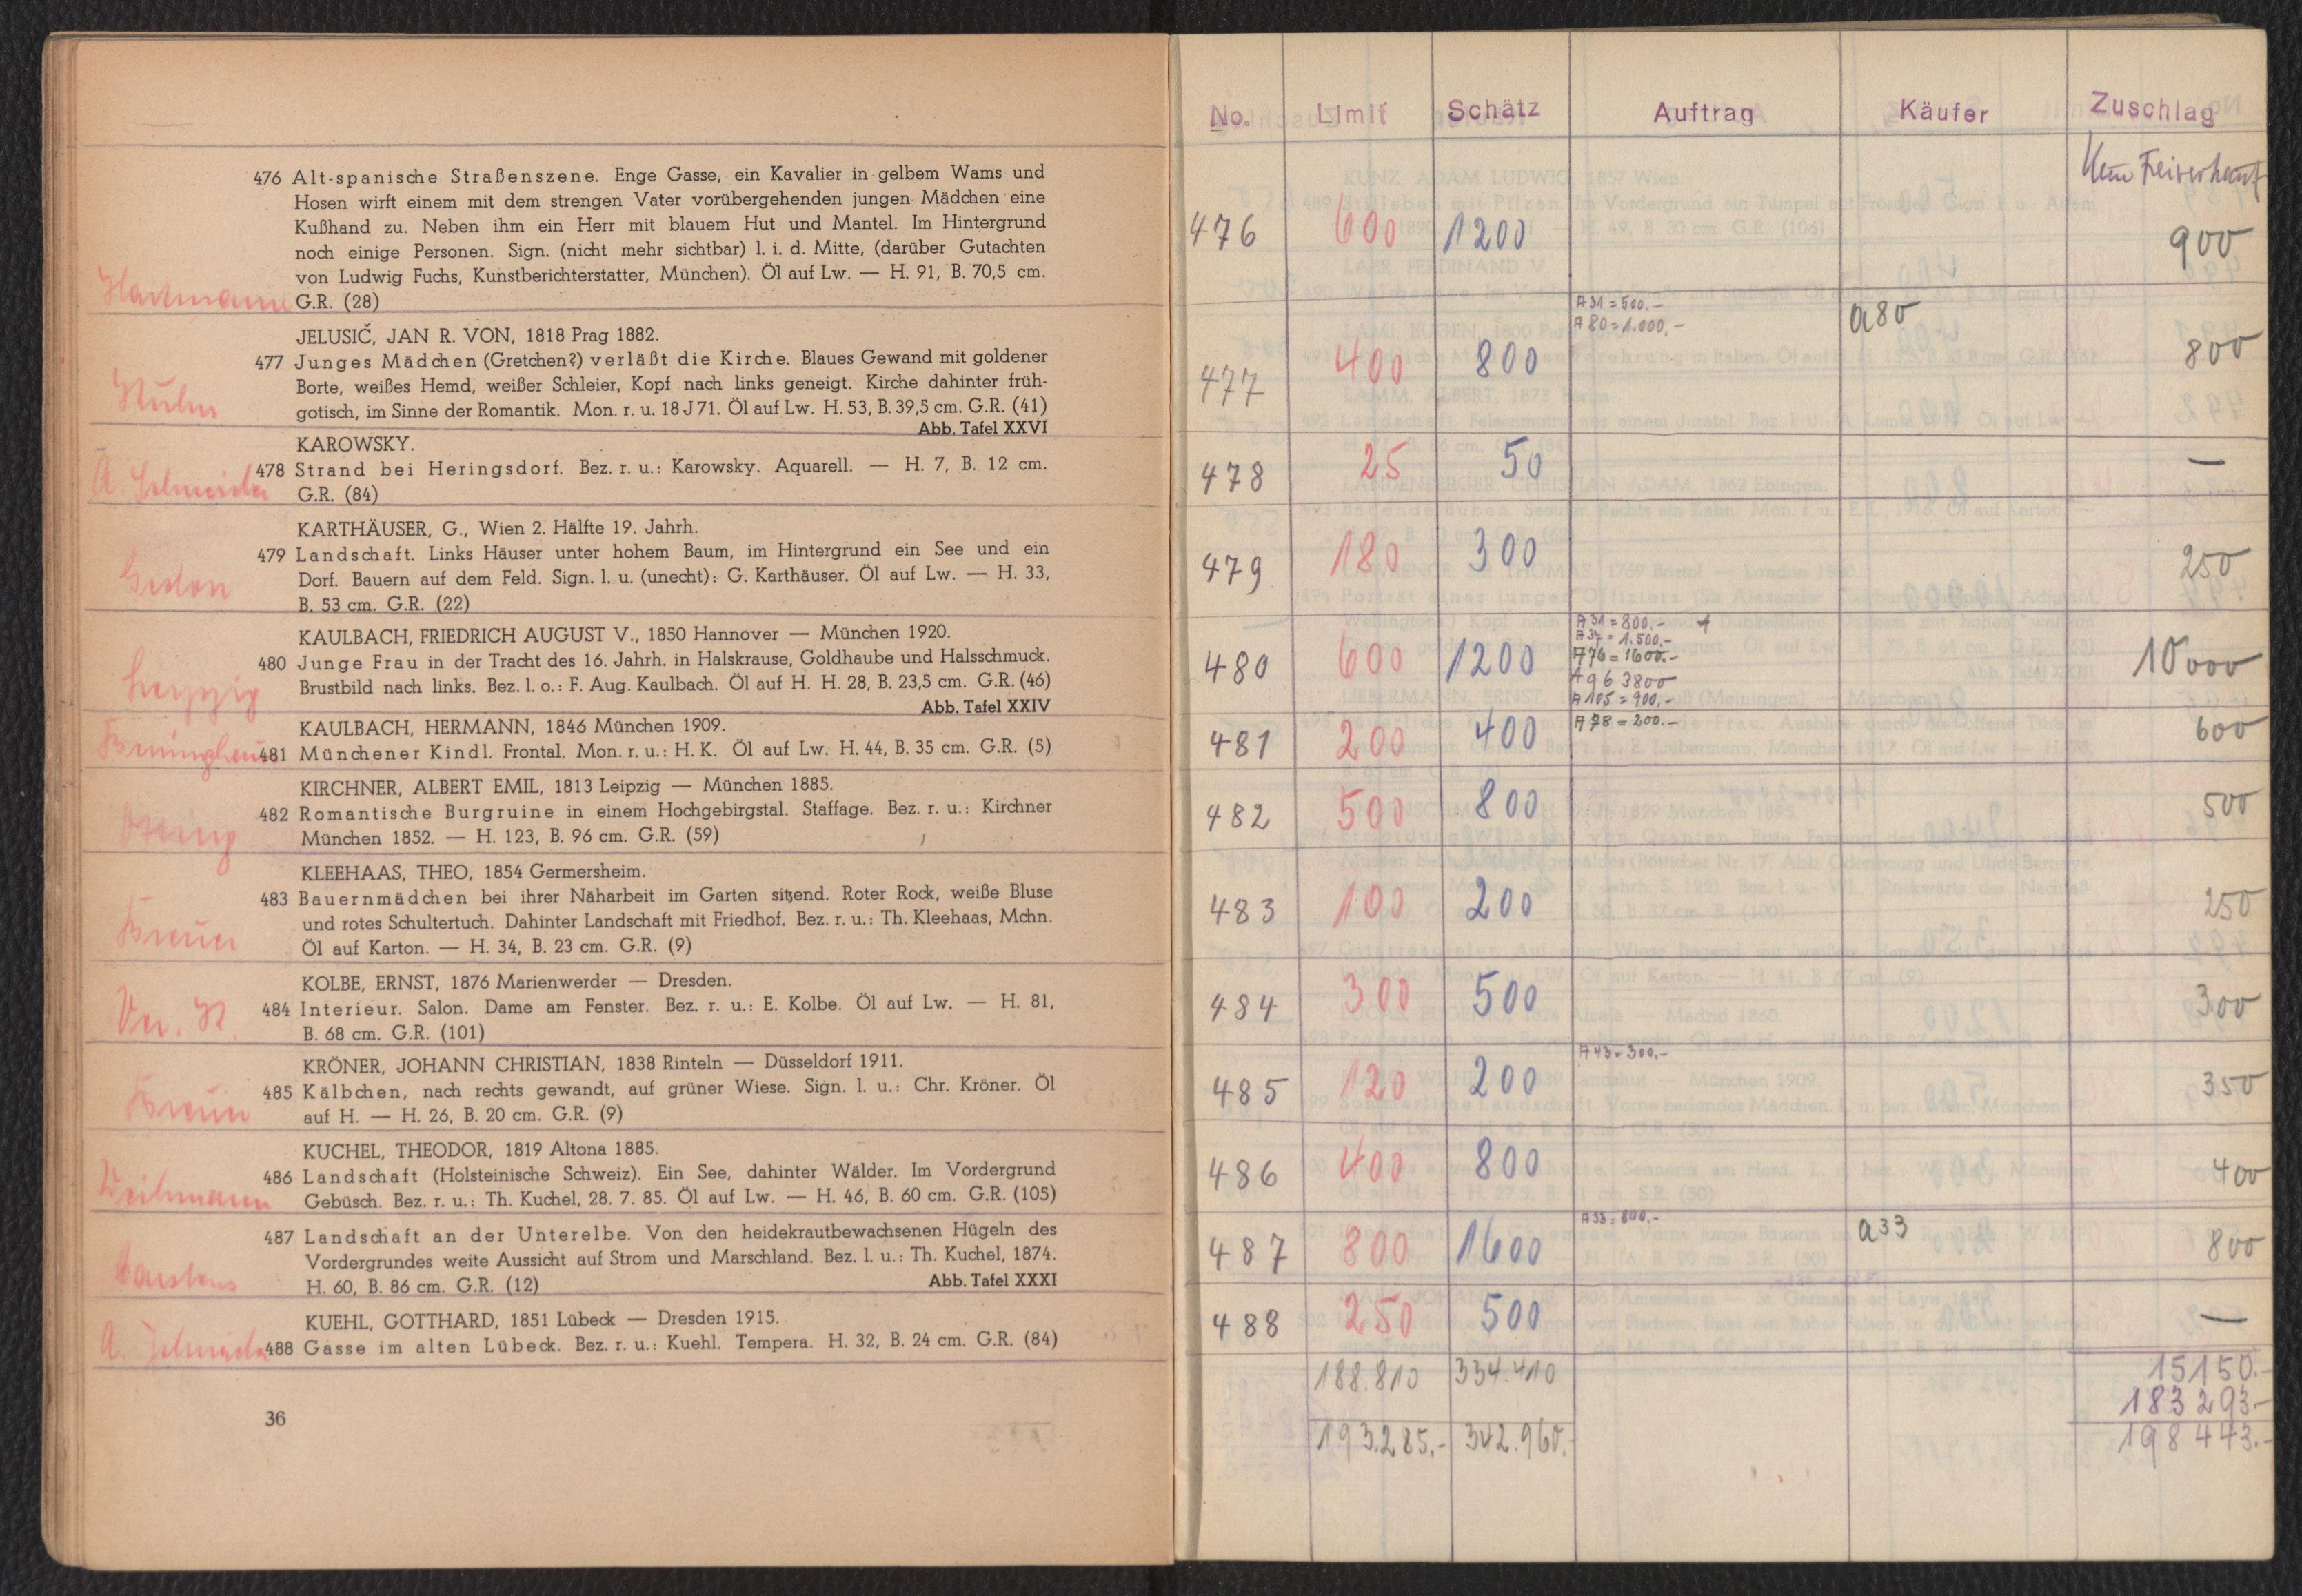 476 Alt-spanische Straßenszene. Enge Gasse, ein Kavalier in gelbem Wams und
Hosen wirft einem mit dem strengen Vater vorübergehenden jungen Mädchen eine
Kußhand zu. Neben ihm ein Herr mit blauem Hut und Mantel. Im Hintergrund
noch einige Personen. Sign. (nicht mehr sichtbar) l. i. d. Mitte, (darüber Gutachten
von Ludwig Fuchs, Kunstberichterstatter, München). Öl auf Lw. — H. 91, B. 70,5 cm.
Hartmann G.R. (28)
JELUSIČ, JAN R. VON, 1818 Prag 1882.
477 Junges Mädchen (Gretchen?) verläßt die Kirche. Blaues Gewand mit goldener
Borte, weißes Hemd, weißer Schleier, Kopf nach links geneigt. Kirche dahinter früh-
gotisch, im Sinne der Romantik. Mon. r. u. 18 J 71. Öl auf Lw. H. 53, B. 39,5 cm. G.R. (41)
Abb. Tafel XXVI
KAROWSKY.
A. Schneider 478 Strand bei Heringsdorf. Bez. r. u.: Karowsky. Aquarell. — H. 7, B. 12 cm.
G.R. (84)
KARTHÄUSER, G., Wien 2. Hälfte 19. Jahrh.
479 Landschaft. Links Häuser unter hohem Baum, im Hintergrund ein See und ein
Gedon Dorf. Bauern auf dem Feld. Sign. l. u. (unecht): G. Karthäuser. Öl auf Lw. — H. 33,
B. 53 cm. G.R. (22)
KAULBACH, FRIEDRICH AUGUST V., 1850 Hannover — München 1920.
480 Junge Frau in der Tracht des 16. Jahrh. in Halskrause, Goldhaube und Halsschmuck.
Leipzig Brustbild nach links. Bez. l. o.: F. Aug. Kaulbach. Öl auf H. H. 28, B. 23,5 cm. G.R. (46)
Abb. Tafel XXIV
KAULBACH, HERMANN, 1846 München 1909.
481 Münchener Kindl. Frontal. Mon. r. u.: H. K. Öl auf Lw. H. 44, B. 35 cm. G.R. (5)
KIRCHNER, ALBERT EMIL, 1813 Leipzig — München 1885.
482 Romantische Burgruine in einem Hochgebirgstal. Staffage. Bez. r. u.: Kirchner
München 1852. — H. 123, B. 96 cm. G.R. (59)
KLEEHAAS, THEO, 1854 Germersheim.
483 Bauernmädchen bei ihrer Näharbeit im Garten sitzend. Roter Rock, weiße Bluse
Breuer und rotes Schultertuch. Dahinter Landschaft mit Friedhof. Bez. r. u.: Th. Kleehaas, Mchn.
Öl auf Karton. — H. 34, B. 23 cm. G.R. (9)
KOLBE, ERNST, 1876 Marienwerder — Dresden.
484 Interieur. Salon. Dame am Fenster. Bez. r. u.: E. Kolbe. Öl auf Lw. — H. 81,
B. 68 cm. G.R. (101)
KRÖNER, JOHANN CHRISTIAN, 1838 Rinteln — Düsseldorf 1911.
485 Kälbchen, nach rechts gewandt, auf grüner Wiese. Sign. l. u.: Chr. Kröner. Öl
Breuer auf H. — H. 26, B. 20 cm. G.R. (9)
KUCHEL, THEODOR, 1819 Altona 1885.
486 Landschaft (Holsteinische Schweiz). Ein See, dahinter Wälder. Im Vordergrund
Gebüsch. Bez. r. u.: Th. Kuchel, 28. 7. 85. Öl auf Lw. — H. 46, B. 60 cm. G.R. (105)
487 Landschaft an der Unterelbe. Von den heidekrautbewachsenen Hügeln des
Vordergrundes weite Aussicht auf Strom und Marschland. Bez. l. u.: Th. Kuchel, 1874.
Carstens H. 60, B. 86 cm. G.R. (12) Abb. Tafel XXXI
KUEHL, GOTTHARD, 1851 Lübeck — Dresden 1915.
A. Schneider 488 Gasse im alten Lübeck. Bez. r. u.: Kuehl. Tempera. H. 32, B. 24 cm. G.R. (84)
36
No. Limit Schätz Auftrag Käufer Zuschlag
476 600 1200 900
A31 = 500.-
A80 = 1.000,- a80
477 400 800 800
478 25 50 —
479 180 300 250
A31 = 800.-
A34 = 1.500.-
A76 = 1600.-
480 600 1200 10000
A96 3800
A105 = 900,-
481 200 400 A78 = 200.- 600
482 500 800 500
483 100 200 250
484 300 500 300
A43 = 300,-
485 120 200 350
486 400 800 400
A33 = 800,- a33
487 800 1600 800
488 250 500 —
188.810 334.410 15150.-
183293.-
193.285.- 342.960.- 198443.-